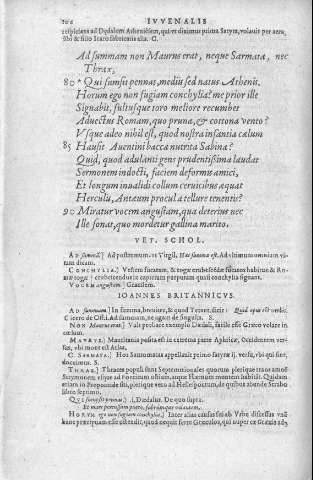 102 IVVENALIS
respiciens ad Dædalum Atheniensem, qui, vt diximus prima Satyra, volauit per aera,
sibi & filio Icaro fabricatis alis. C.
Ad summam non Maurus erat, neque Sarmata, nec
Thrax,
80 * Qui sumsit pennas, mediis sed natus Athenis.
Horum ego non fugiam conchylia? me prior ille
Signabit, fultusque toro meliore recumbet
Aduectus Romam, quo pruna, & cottona vento?
Vsque adeo nihil est, quod nostra infantia cælum
85 Hausit Auentini bacca nutrita Sabina?
Quid, quod adulandi gens prudentissima laudat
Sermonem indocti, faciem deformis amici,
Et longum inualidi collum ceruicibus æquat
Herculis, Antæum procul a tellure tenentis?
90 Miratur vocem angustam, qua deterius nec
Ille sonat, quo mordetur gallina marito.
VET. SCHOL.
AD summam.] Ad postremum. et Virgil. Hæc summa est. Ad vltimum omnium
dicam.
CONCHYLIA.] Vestem fucatam, & togæ erubescendæ
erubescendum in capitum purpuram quasi conchylia signant.
VOCEM angustam.] Gracilem.
IOANNES BRITANNICVS.
AD summam.] In summa, breuiter, & quod Terent. dicit: Quid opus est verbis.
Cicero de Offi. Ad summam, ne agam de singulis. S.
NON Maurus erat.] Valt probare exemplo Dædali, facile esse Græco volare in
cælum.
MAVRVS.] Mauritania posita est in extrema parte Aphricæ, Occidentem versus,
vbi mons est Atlas.
C. SARMATA.] Hos Sauromatas appellauit primo satyræ ij. versu, vbi qui sint,
docuimus.
THRAX.] Thraces populi sunt Septentrionales quorum plerique trans amnem
Strymonem vsque ad Ponticum ostium, atque Hæmum montem habitat. Quidam
etiam in Proponcide siti, plerique vero ad Hellespontum, de quibus abunde Strabo
libro septimo.
QVI sumsit pennas.] i. Dædalus. De quo supra.
HORVM ego non fugiam conchylia.] Inter alias causas sui ab Vrbe discessus
hanc præcipuam esse ostendit, quod nequit ferre Græculos, qui nuper ex Græcia